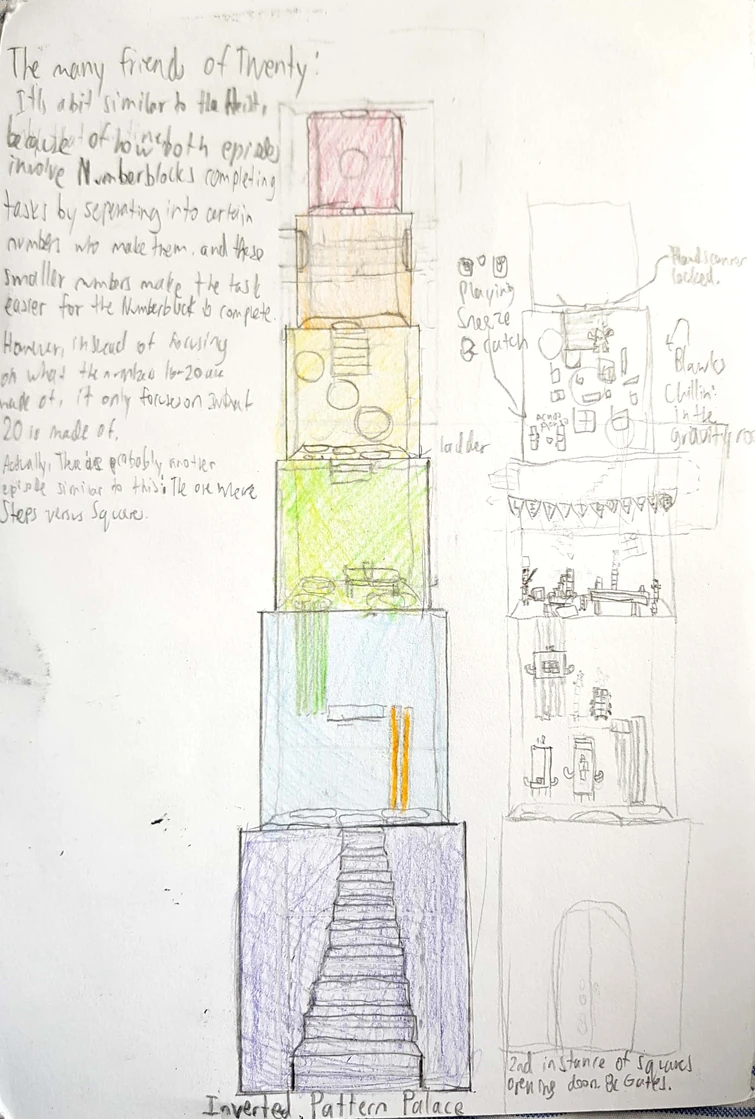 The many friends of Twenty:
It's a bit similar to the Heist,
because of how both episodes
involve Numberblocks completing
tasks by seperating into certain
numbers who make them, and these
smaller numbers make the task
easier for the Numberblock to complete.
However, instead of focusing
on what the numbers 16-20 are
made of, it only focuses on what
20 is made of.
Actually, There's probably another
episode similar to this: The one where
Steps versus Squares.
Playing
Sneeze
& catch
Handscanner
locked.
Blanks
Chillin'
in the
gravity
ladder
2nd instance of squares
opening door. Be Gates.
Inverted Pattern Palace